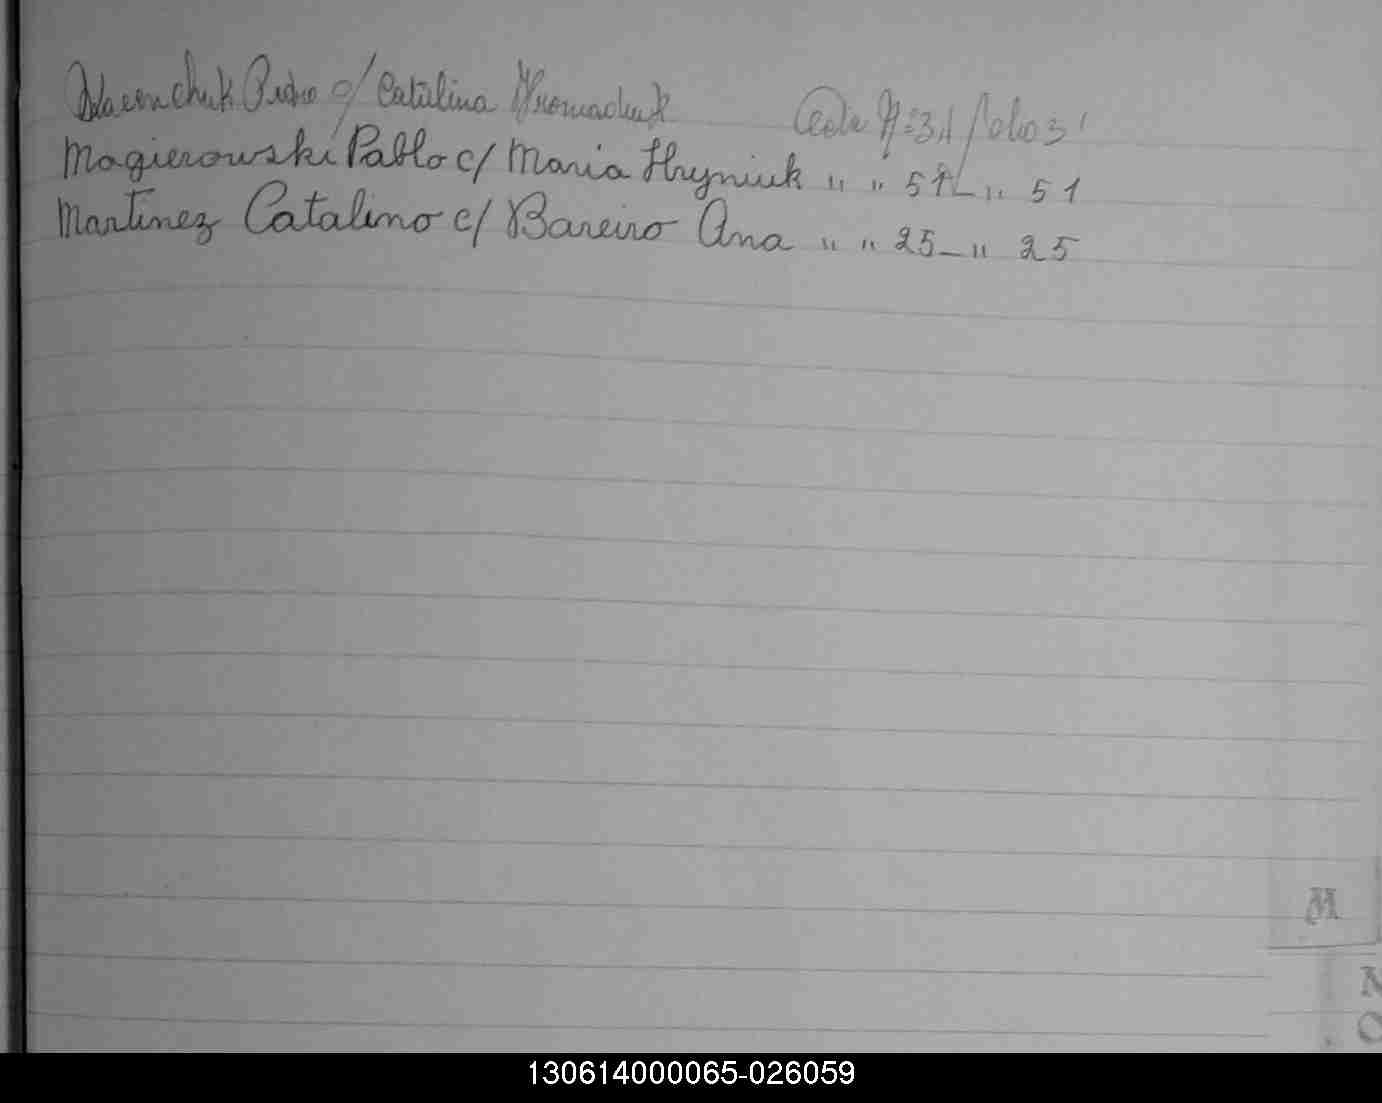 Pedro c/ Catalina Hromadiuk Acta Nº 3, folio 3
Magierowski Pablo c/ Maria Hryniuk " " 51 — " 51
Martinez Catalino c/ Bareiro Ana " " 25 — " 25
M
N
O
130614000065-026059